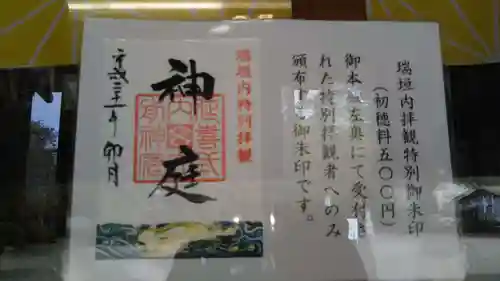 瑞垣内拝観特別御朱印
（初穂料五〇〇円）
御本殿左奥にて受付さ
れた特別拝観者へのみ
頒布する御朱印です。
瑞垣内特別拝観
神庭
平成三十一年 卯月